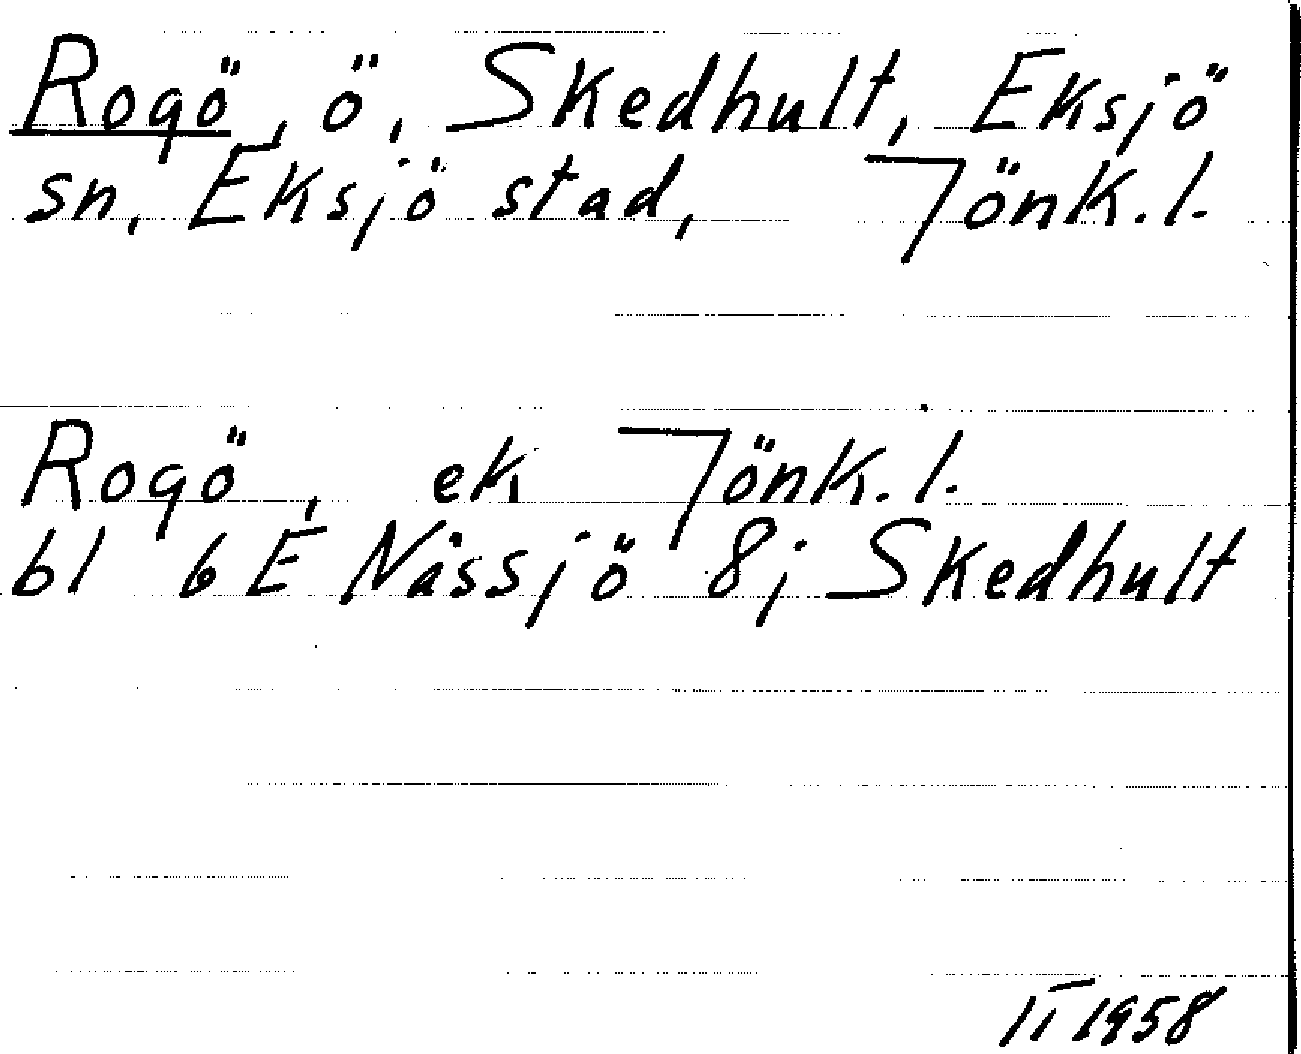 Rogö, ö, Skedhult, Eksjö
sn, Eksjö stad, Jönk.l.
Rogö, ek Jönk.l.
bl 6E Nässjö 8j Skedhult
II 1958